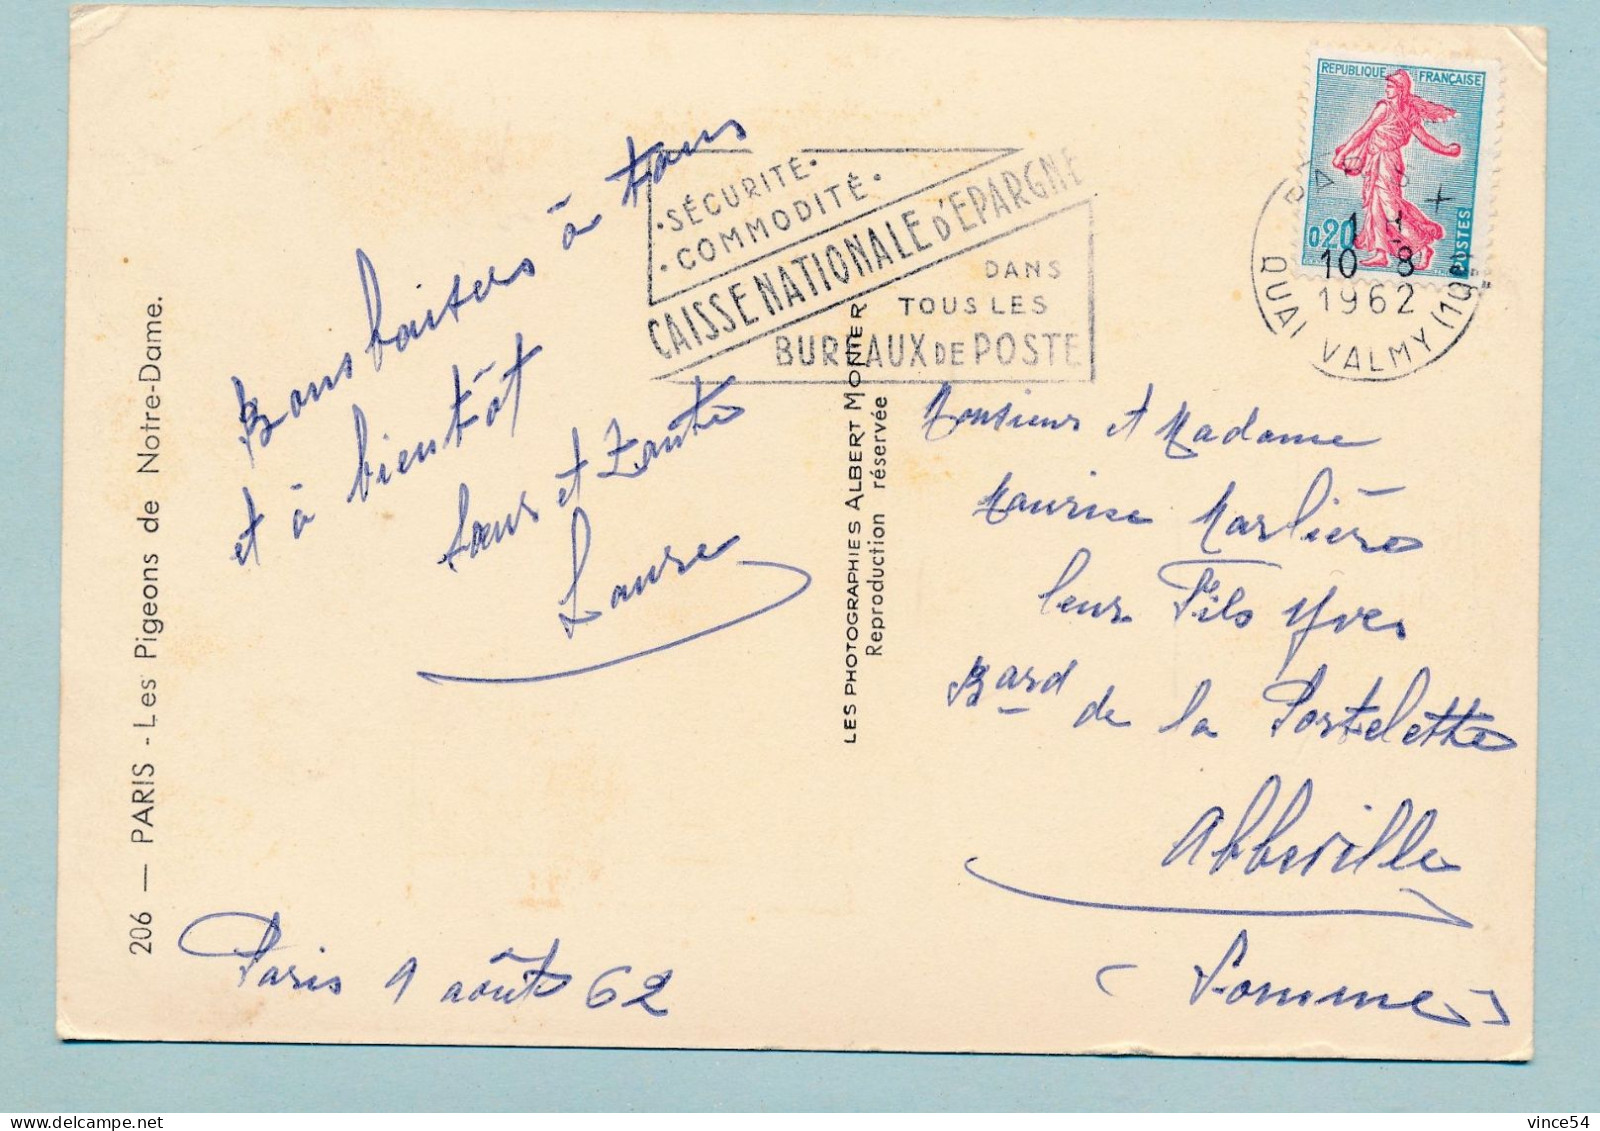 206 — PARIS - Les Pigeons de Notre-Dame.
Bons baisers à tous
et à bientôt
tous et Tante
Laure
Paris 9 août 62
LES PHOTOGRAPHIES ALBERT MONIER
Reproduction réservée
• SÉCURITÉ •
• COMMODITÉ •
CAISSE NATIONALE D'EPARGNE
DANS
TOUS LES
BUREAUX DE POSTE
REPUBLIQUE FRANÇAISE
0,20
POSTES
10 - 8
1962
QUAI VALMY (10e)
Monsieur et Madame
Maurice Marlière
leur Fils Yves
Bard de la Portelette
Abbeville
(Somme)
delcampe.net
vince54